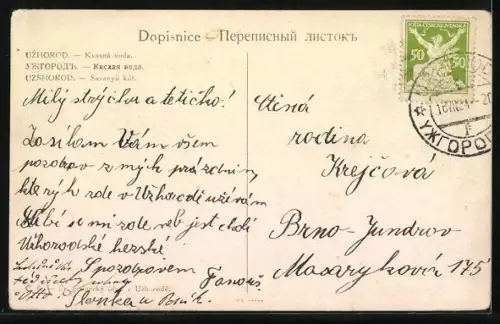 Dopisnice — Переписный листокъ
UŽHOROD. — Kyselá voda.
УЖГОРОДЪ. — Киская вода.
UZSHOROD. — Savanyú kút.
50 50
УЖГОРОД
Milý strýčku a tetičko!
Zasílam Vám všem
pozdrav z mých prázdnin,
kterých zde v Užhorodě užívám
Líbí se mi zde neb jest okolí
Užhorodské hezské.
S pozdravem Fanouš
Slávka a
Otto
Ctěná
rodina
Krejčová
Brno-Jundrov
Masarykova 175